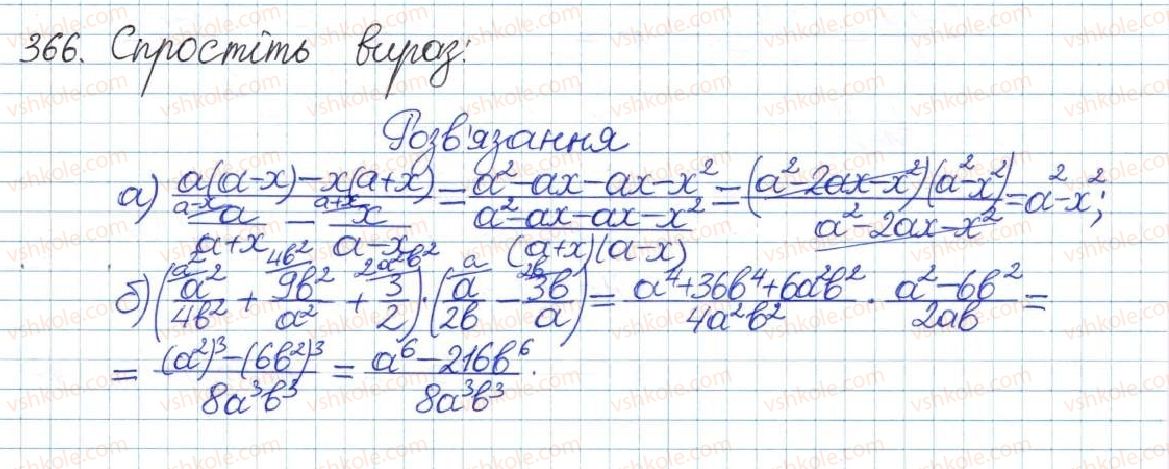 366. Спростіть вираз:
Розв'язання
а) (a(a-x)-x(a+x))/(a/(a+x) - x/(a-x)) = (a²-ax-ax-x²)/((a²-ax-ax-x²)/((a+x)(a-x))) = ((a²-2ax-x²)(a²-x²))/(a²-2ax-x²) = a²-x²;
б) (a²/4b² + 9b²/a² + 3/2)·(a/2b - 3b/a) = (a⁴+36b⁴+6a²b²)/4a²b² · (a²-6b²)/2ab =
= ((a²)³-(6b²)³)/8a³b³ = (a⁶-216b⁶)/8a³b³.